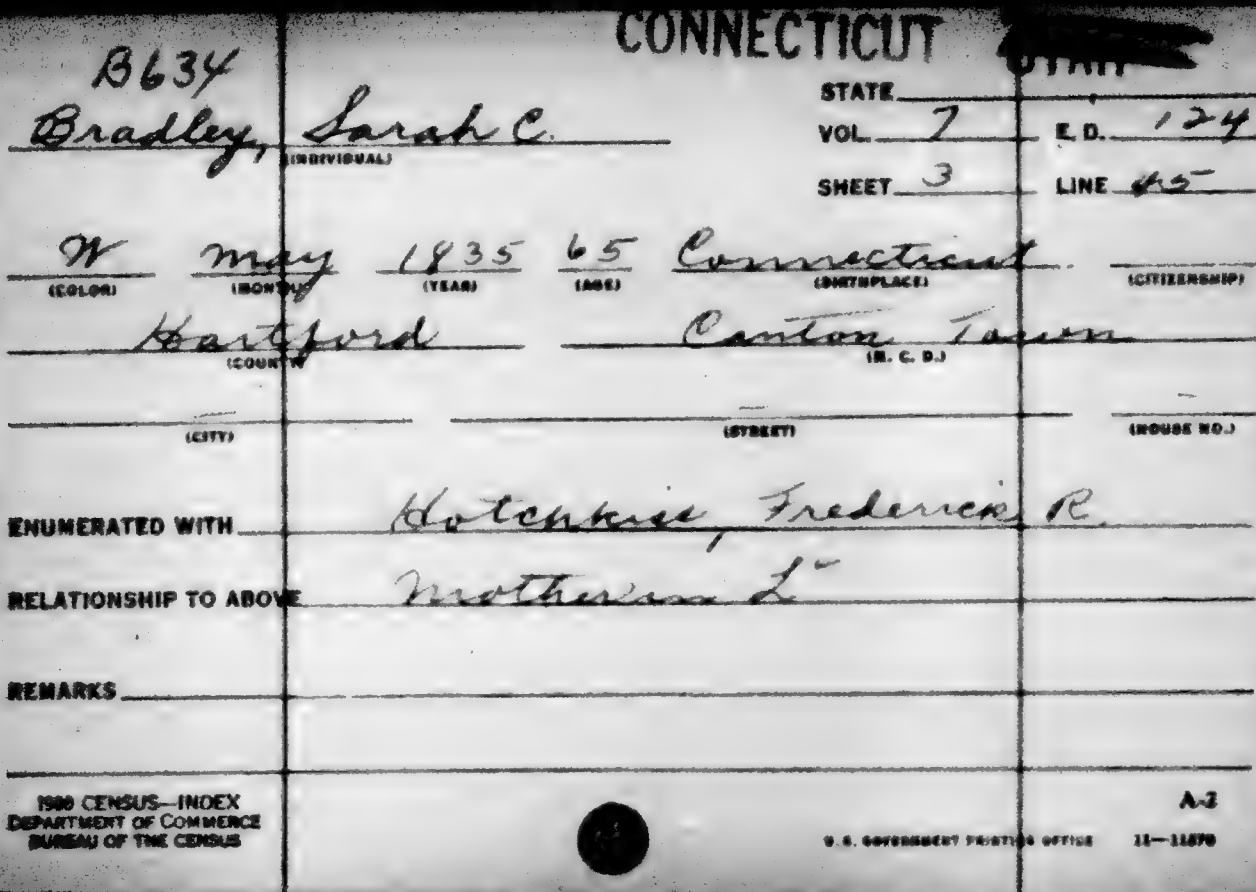 CONNECTICUT
B634
STATE
Bradley, Sarah C.
(INDIVIDUAL)
VOL. 7 E. D. 124
SHEET 3 LINE 45
W May 1835 65 Connecticut
(COLOR) (MONTH) (YEAR) (AGE) (BIRTHPLACE) (CITIZENSHIP)
Hartford Canton Town
(COUNTY) (M. C. D.)
(CITY) (STREET) (HOUSE NO.)
ENUMERATED WITH Hotchkiss, Frederick R.
RELATIONSHIP TO ABOVE Mother in L
REMARKS
1900 CENSUS—INDEX A-2
DEPARTMENT OF COMMERCE
BUREAU OF THE CENSUS U.S. GOVERNMENT PRINTING OFFICE 11—11870